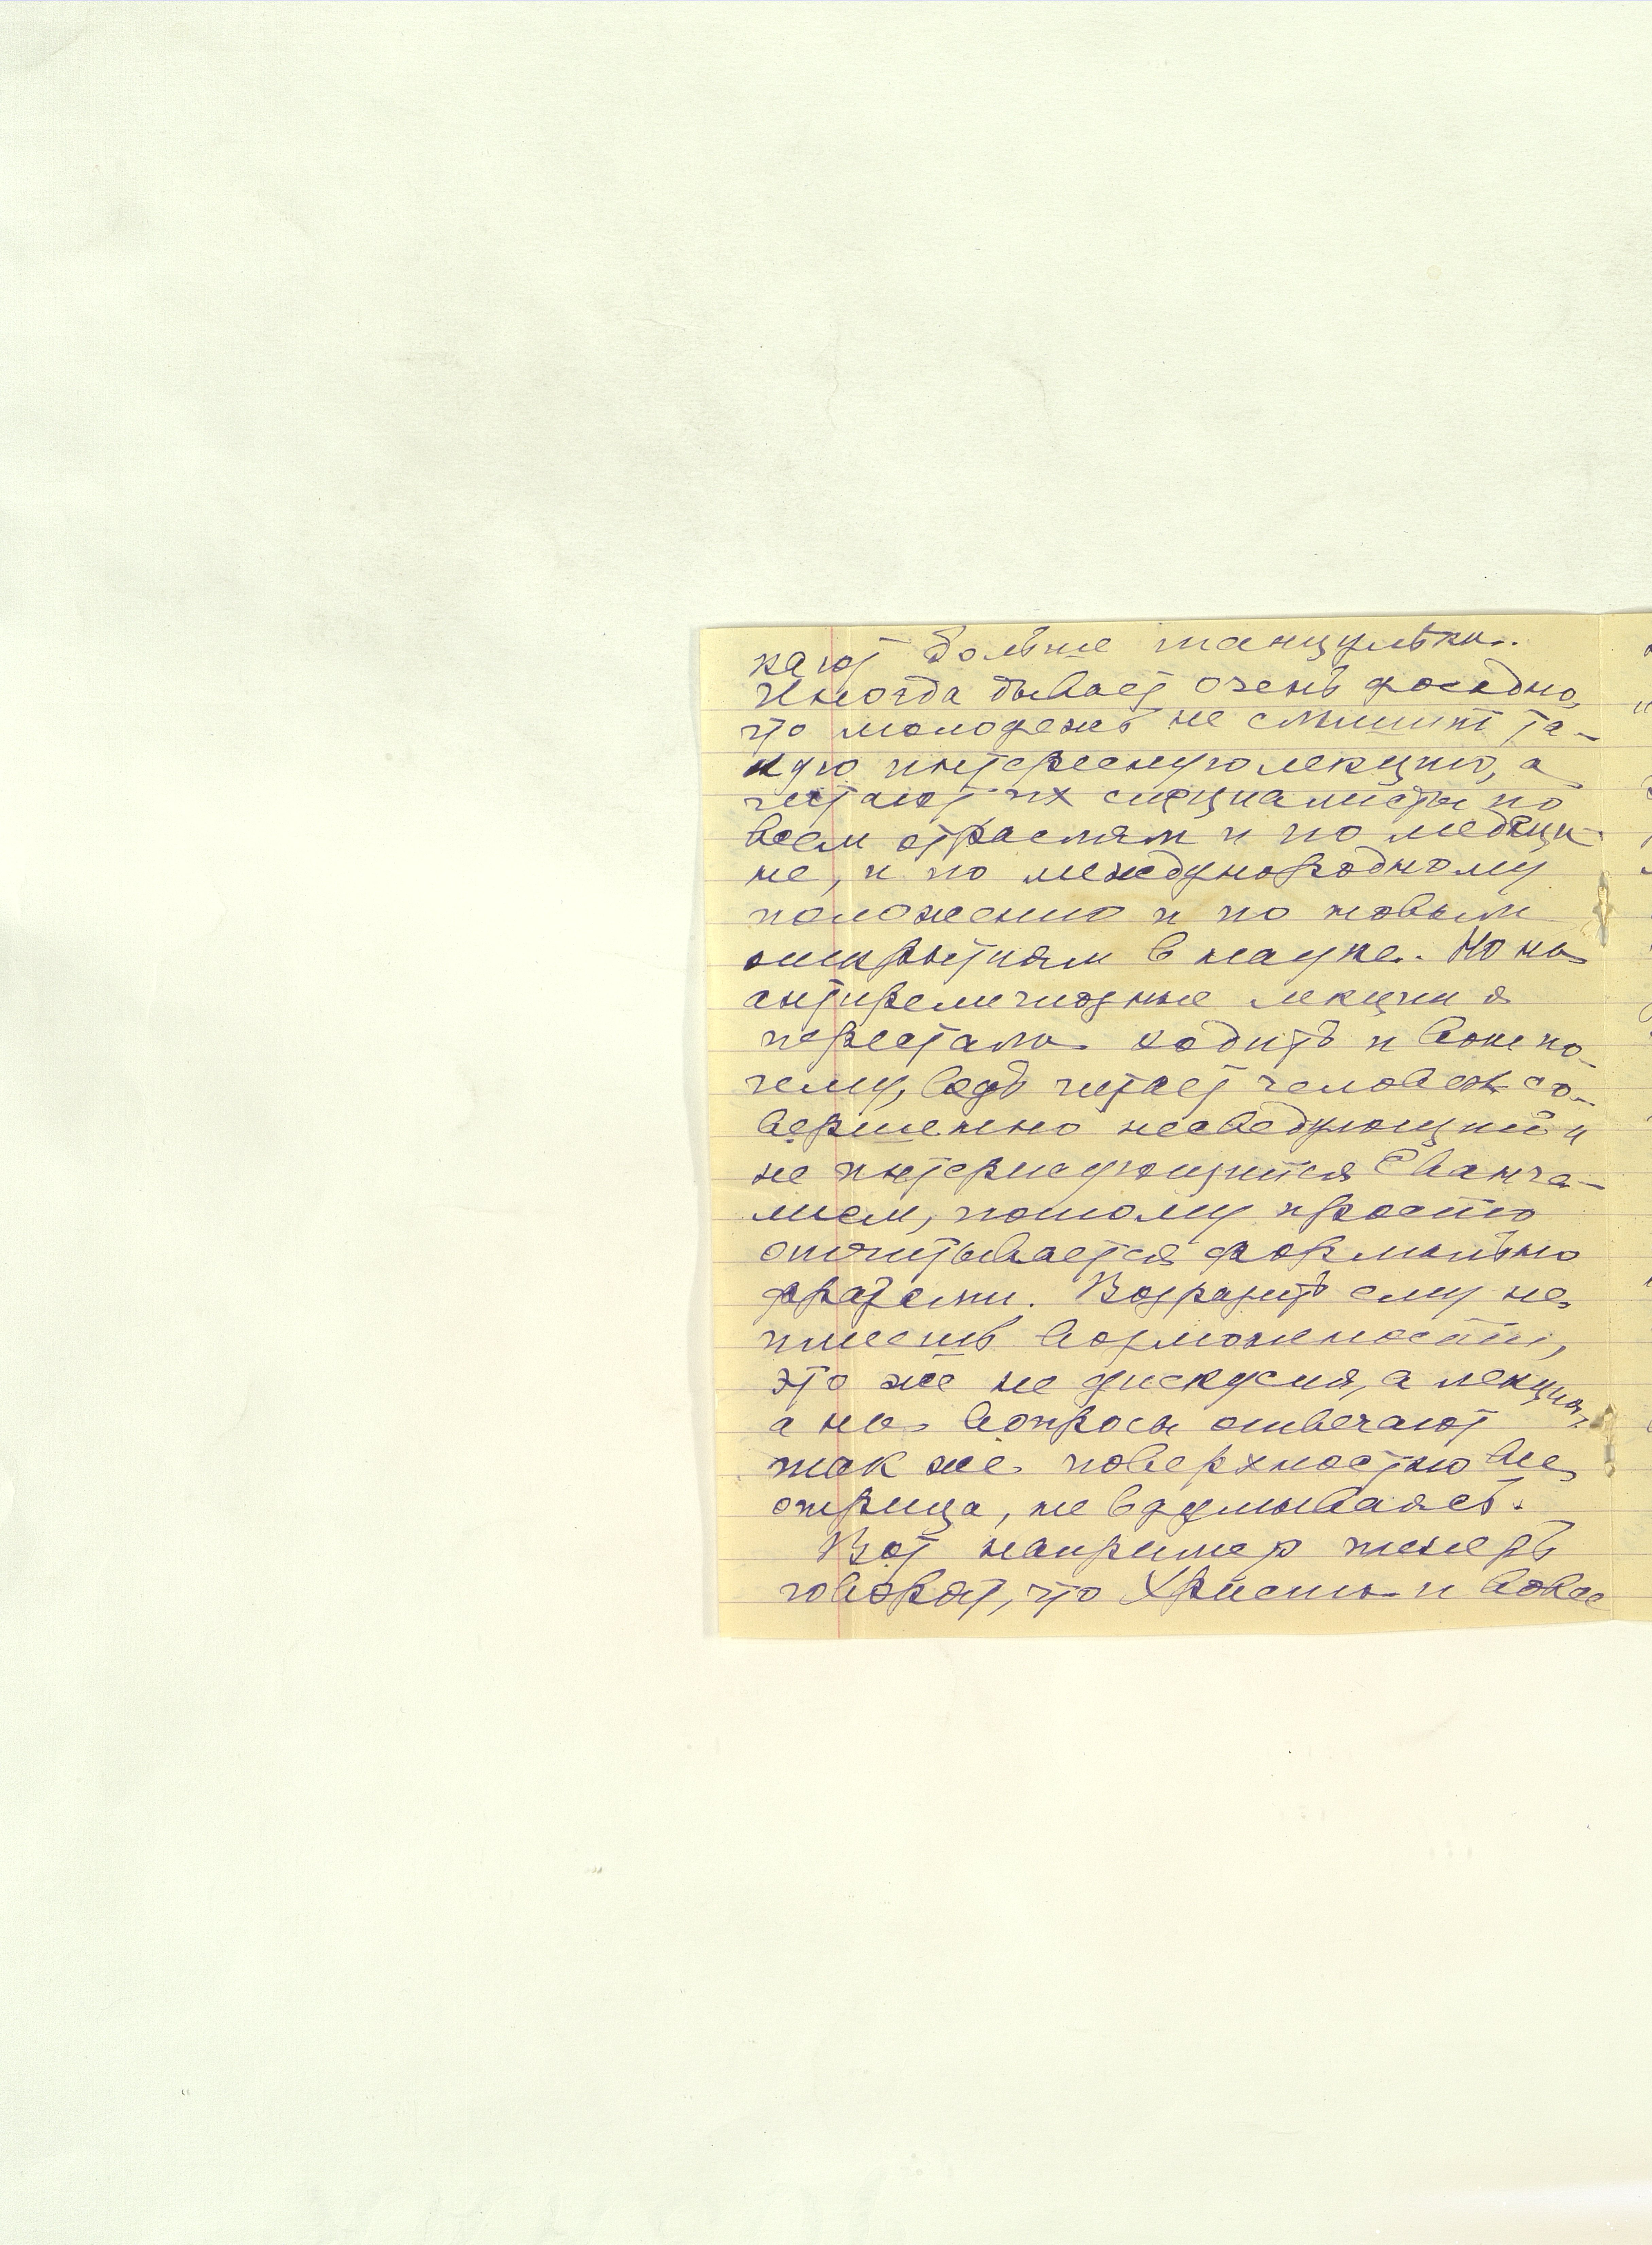 кают больше танцульки.
Иногда бывает очень досадно,
что молодежь не слышит та-
кую интересную лекцию, а
читают их специалисты по
всем отраслям и по медици-
не, и по международному
положению и по новым
открытиям в науке. Но на
антирелигиозные лекции я
перестала ходить и вот по-
чему, ведь читает человек со-
вершенно несведующий и
не интерисующийся Еванге-
лием, потому просто
отчитывается формально
фразами. Возразить ему не
имеешь возможности,
это же не дискусия, а лекция,
а на вопросы отвечают
так же поверхностно все
отрица, не вдумываясь.
Вот например теперь
говорят, что Христа и вовсе